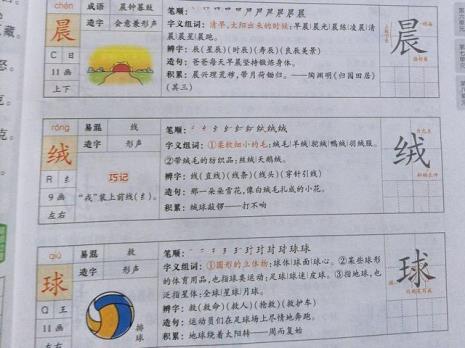 chén 成语 晨钟暮鼓
晨 造字 会意兼形声
C 日
11画
上下
笔顺：
字义组词：清早，太阳出来的时候：早晨|晨光|晨练|凌晨|清
晨|晨星|晨跑。
辨字：辰(星辰)(时辰)(寿辰)(良辰美景)
造句：爸爸每天早晨坚持锻炼身体。
积累：晨兴理荒秽，带月荷锄归。——陶渊明《归园田居》
(其三)
晨
róng 易混 线
绒 造字 形声
R 纟
9画
左右
巧记
“戎”装上前线(纟)。
笔顺：
字义组词：①柔软细小的毛：绒毛|羊绒|驼绒|鸭绒|羽绒服。
②带绒毛的纺织品：丝绒|天鹅绒。
辨字：线(直线)(线条)(线头)(穿针引线)
造句：那一朵朵雪花，像白绒毛扎成的小花。
积累：绒球敲锣——打不响
绒
qiú 易混 救
球 造字 形声
Q 王
11画
左右
排球
笔顺：
字义组词：①圆形的立体物：球体|球面|球心。②某些球形
的体育用品，也指球类运动：足球|球迷|皮球。③指地球，也
泛指星体：全球|星球|月球。
辨字：救(救命)(救人)(抢救)(救护车)
造句：运动员们在足球场上尽情地奔跑。
积累：地球绕着太阳转——周而复始
球